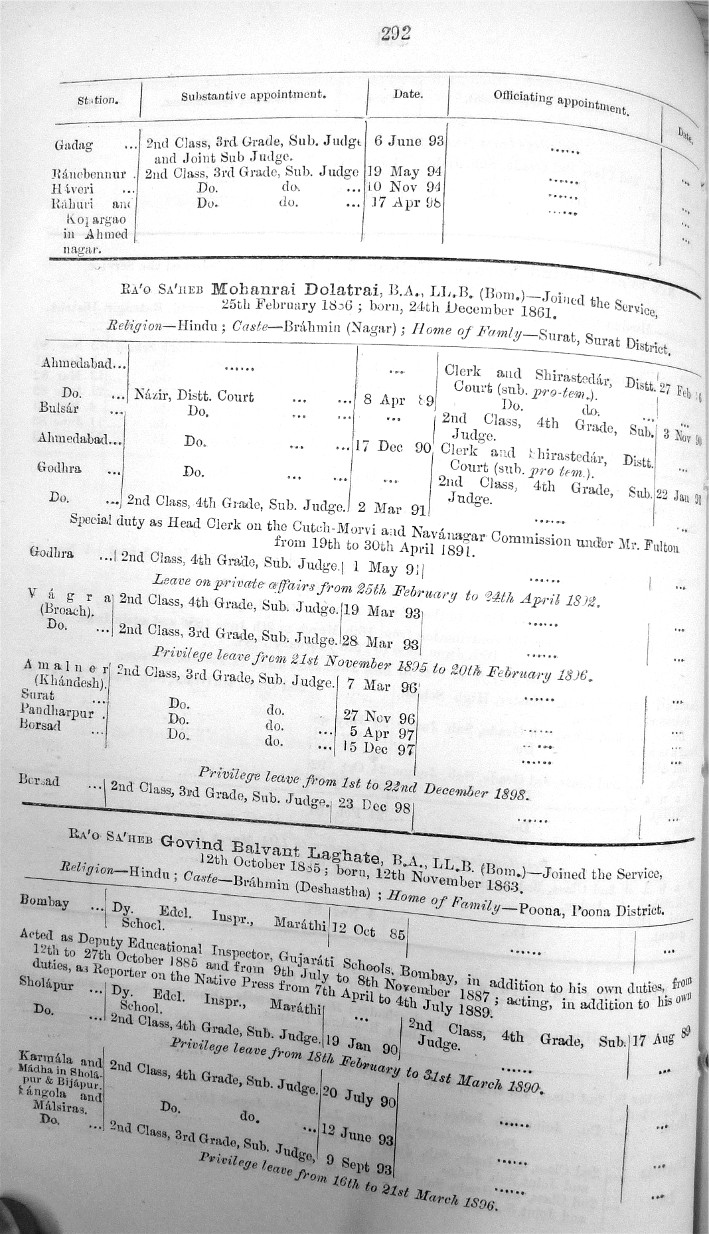 292
Station. Substantive appointment. Date. Officiating appointment. Date.
Gadag ... 2nd Class, 3rd Grade, Sub. Judge 6 June 93 ......
and Joint Sub Judge.
Ránebennur . 2nd Class, 3rd Grade, Sub. Judge 19 May 94 ...... ...
Háveri ... Do. do. ... 10 Nov 94 ...... ...
Ráhuri and Do. do. ... 17 Apr 98 ...... ...
Kopargao
in Ahmed
nagar.
RA'O SA'HEB Mohanrai Dolatrai, B.A., LL.B. (Bom.)—Joined the Service,
25th February 1886 ; born, 24th December 1861.
Religion—Hindu ; Caste—Bráhmin (Nagar) ; Home of Famly—Surat, Surat District.
Ahmedabad... ...... ... Clerk and Shirastedár, Distt. 27 Feb
Court (sub. pro-tem.).
Do. ... Názir, Distt. Court ... ... 8 Apr 89 Do. do. ...
Bulsár ... Do. ... ... ... 2nd Class, 4th Grade, Sub. 3 Nov 90
Judge.
Ahmedabad... Do. ... ... 17 Dec 90 Clerk and Shirastedár, Distt. ...
Court (sub. pro tem.).
Godhra ... Do. ... ... ... 2nd Class, 4th Grade, Sub. 22 Jan 91
Judge.
Do. ... 2nd Class, 4th Grade, Sub. Judge. 2 Mar 91 ...... ...
Special duty as Head Clerk on the Cutch-Morvi and Navánagar Commission under Mr. Fulton
from 19th to 30th April 1891.
Godhra ... 2nd Class, 4th Grade, Sub. Judge. 1 May 91 ...... ...
Leave on private affairs from 25th February to 24th April 1892.
Vágra 2nd Class, 4th Grade, Sub. Judge. 19 Mar 93 ...... ...
(Broach).
Do. ... 2nd Class, 3rd Grade, Sub. Judge. 28 Mar 93 ...... ...
Privilege leave from 21st November 1895 to 20th February 1896.
Amalner 2nd Class, 3rd Grade, Sub. Judge. 7 Mar 96 ...... ...
(Khándesh).
Surat ... Do. do. 27 Nov 96 ...... ...
Pandharpur . Do. do. ... 5 Apr 97 ...... ...
Borsad ... Do. do. ... 15 Dec 97 ...... ...
Privilege leave from 1st to 22nd December 1898.
Borsad ... 2nd Class, 3rd Grade, Sub. Judge. 23 Dec 98 ...... ...
RA'O SA'HEB Govind Balvant Laghate, B.A., LL.B. (Bom.)—Joined the Service,
12th October 1885 ; born, 12th November 1863.
Religion—Hindu ; Caste—Bráhmin (Deshastha) ; Home of Family—Poona, Poona District.
Bombay ... Dy. Edcl. Inspr., Maráthi 12 Oct 85 ...... ...
School.
Acted as Deputy Educational Inspector, Gujaráti Schools, Bombay, in addition to his own duties, from
12th to 27th October 1885 and from 9th July to 8th November 1887 ; acting, in addition to his own
duties, as Reporter on the Native Press from 7th April to 4th July 1889.
Sholápur ... Dy. Edcl. Inspr., Maráthi ... 2nd Class, 4th Grade, Sub. 17 Aug 89
School. Judge.
Do. ... 2nd Class, 4th Grade, Sub. Judge. 19 Jan 90 ...... ...
Privilege leave from 18th February to 31st March 1890.
Karmála and 2nd Class, 4th Grade, Sub. Judge. 20 July 90 ...... ...
Mádha in Sholá-
pur & Bijápur.
Sángola and Do. do. ... 12 June 93 ...... ...
Málsiras.
Do. ... 2nd Class, 3rd Grade, Sub. Judge, 9 Sept 93 ...... ...
Privilege leave from 16th to 21st March 1896.